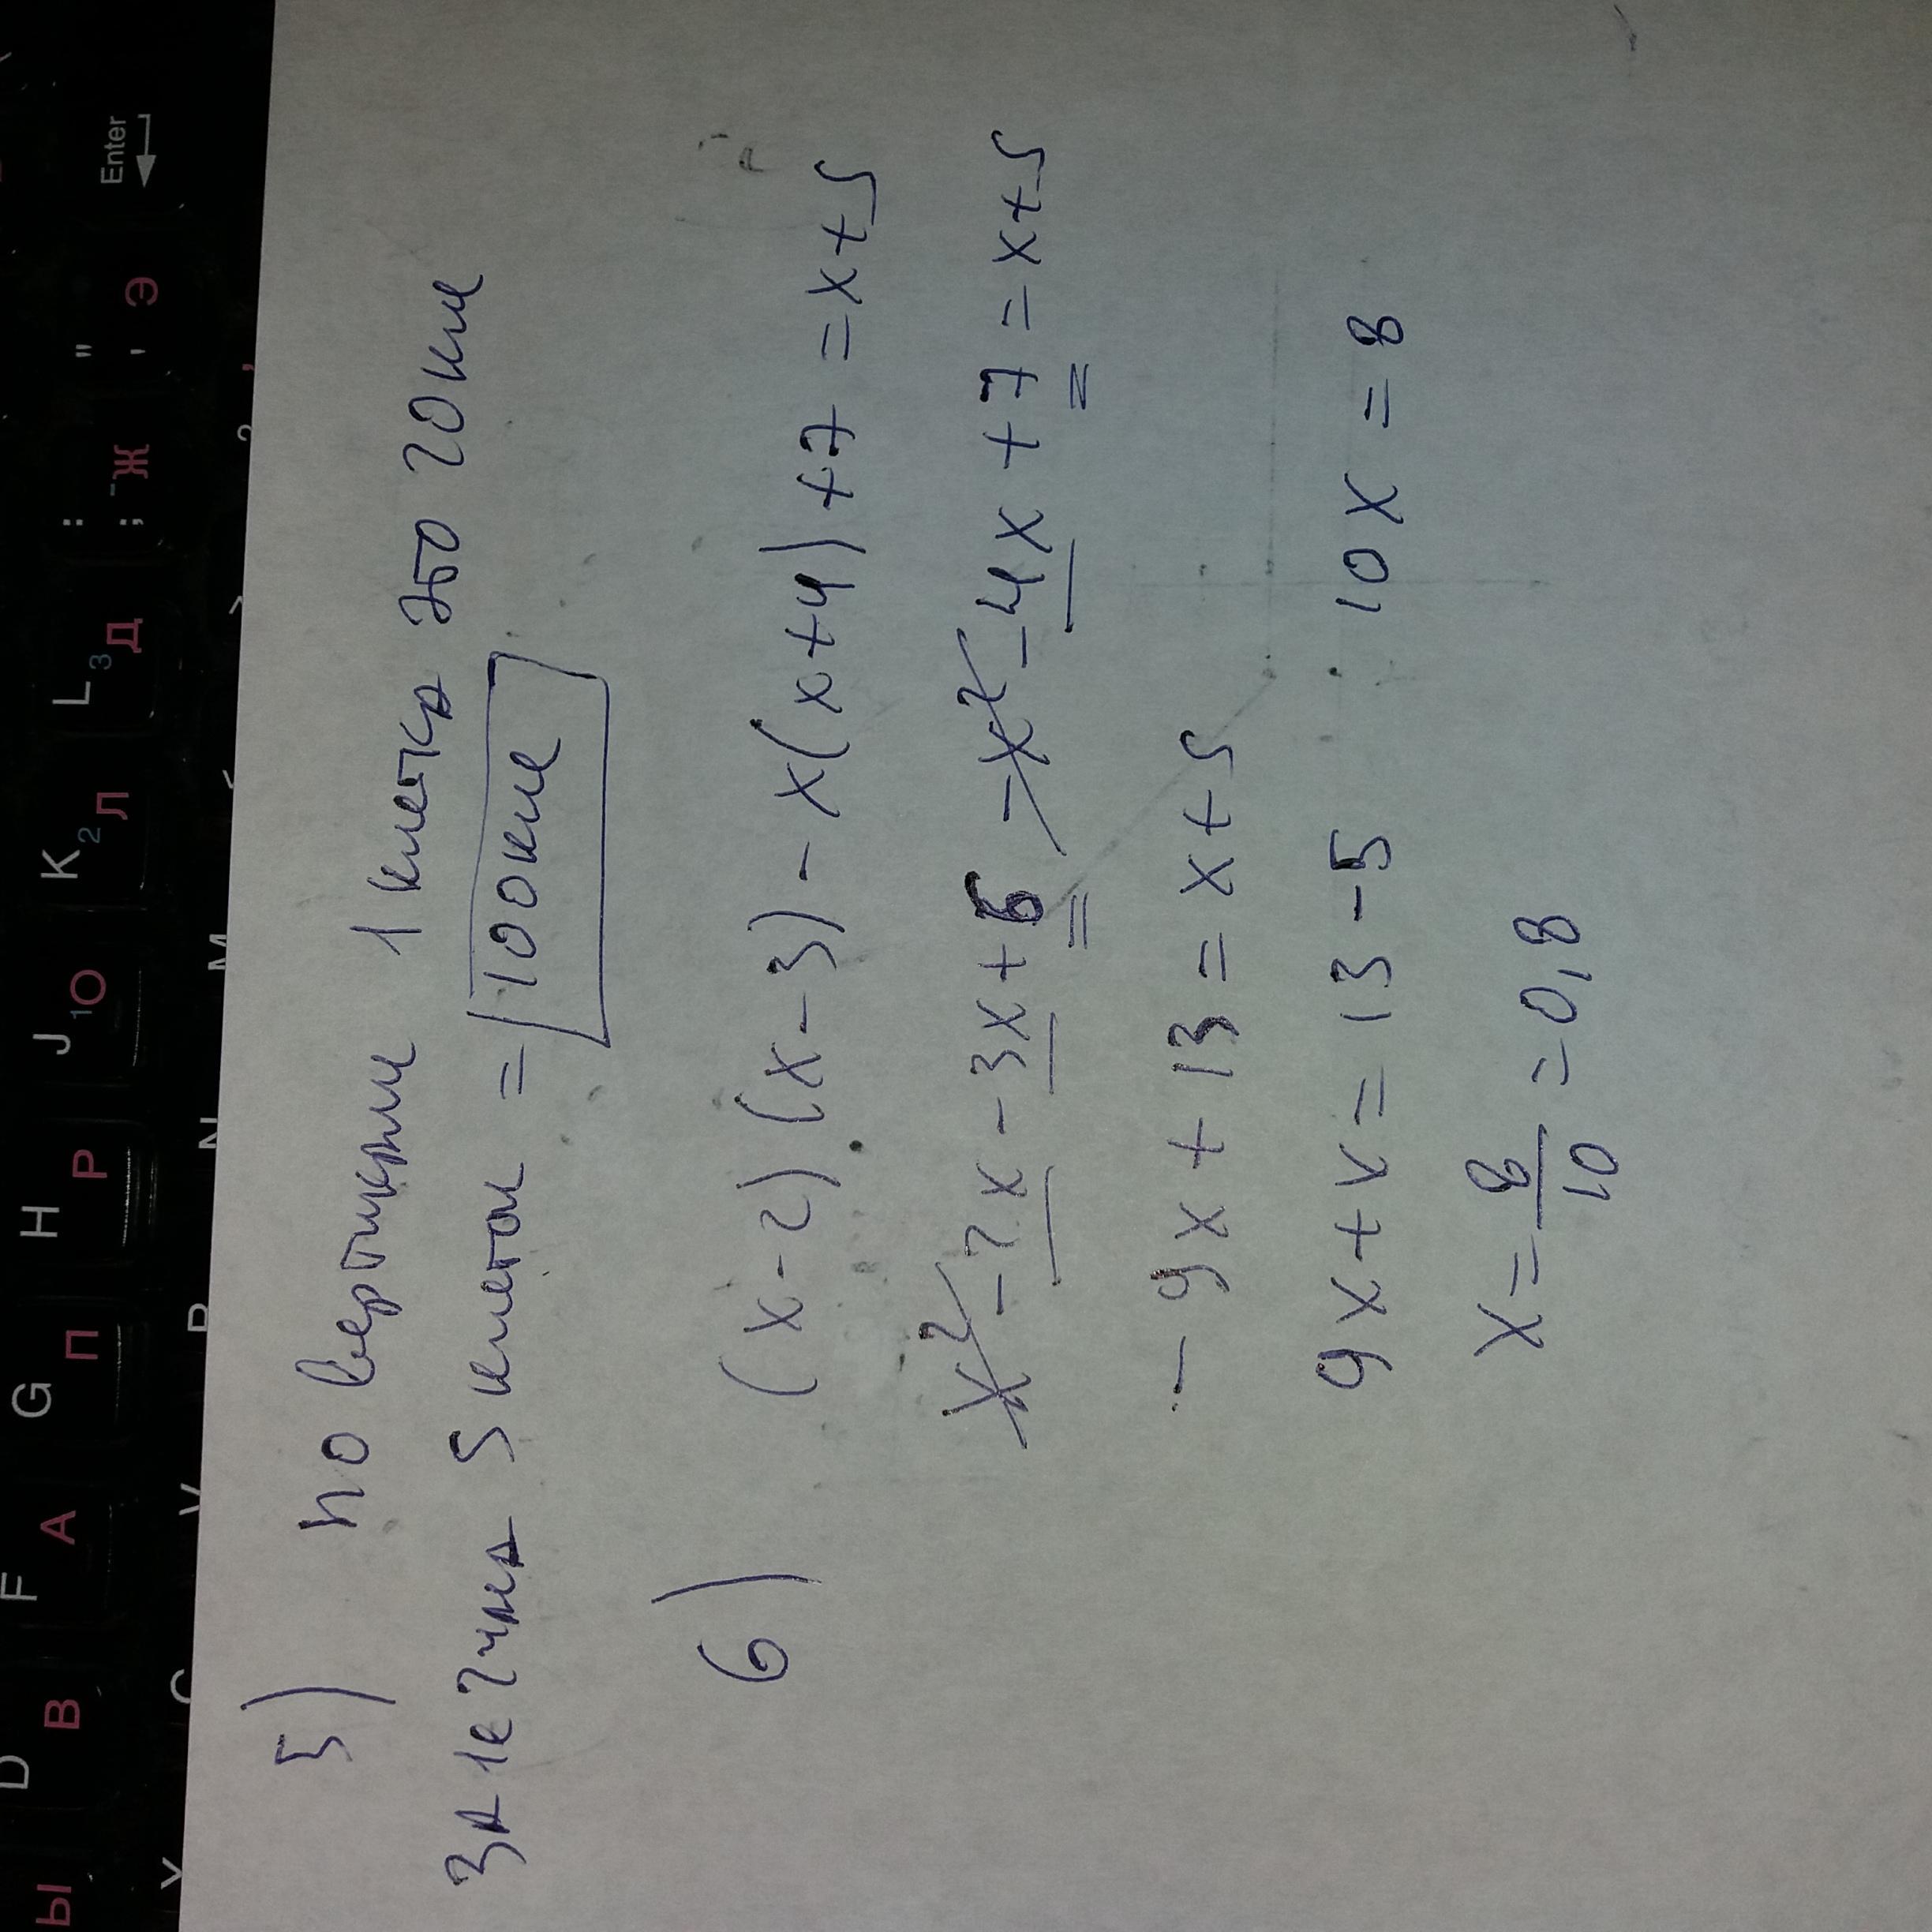 5) По вертикали 1 клетка это 20 км
За 1е 2 часа 5 клеток = 100 км
6) (x-2)(x-3)-x(x+4)+7=x+5
x²-2x-3x+6-x²-4x+7=x+5
-9x+13=x+5
9x+x=13-5 10x=8
x=8/10=0,8
Enter
" ' Э
: ; Ж
L 3 Д
K 2 Л
J 1 О
H Р
G П
F А
D В
Ы